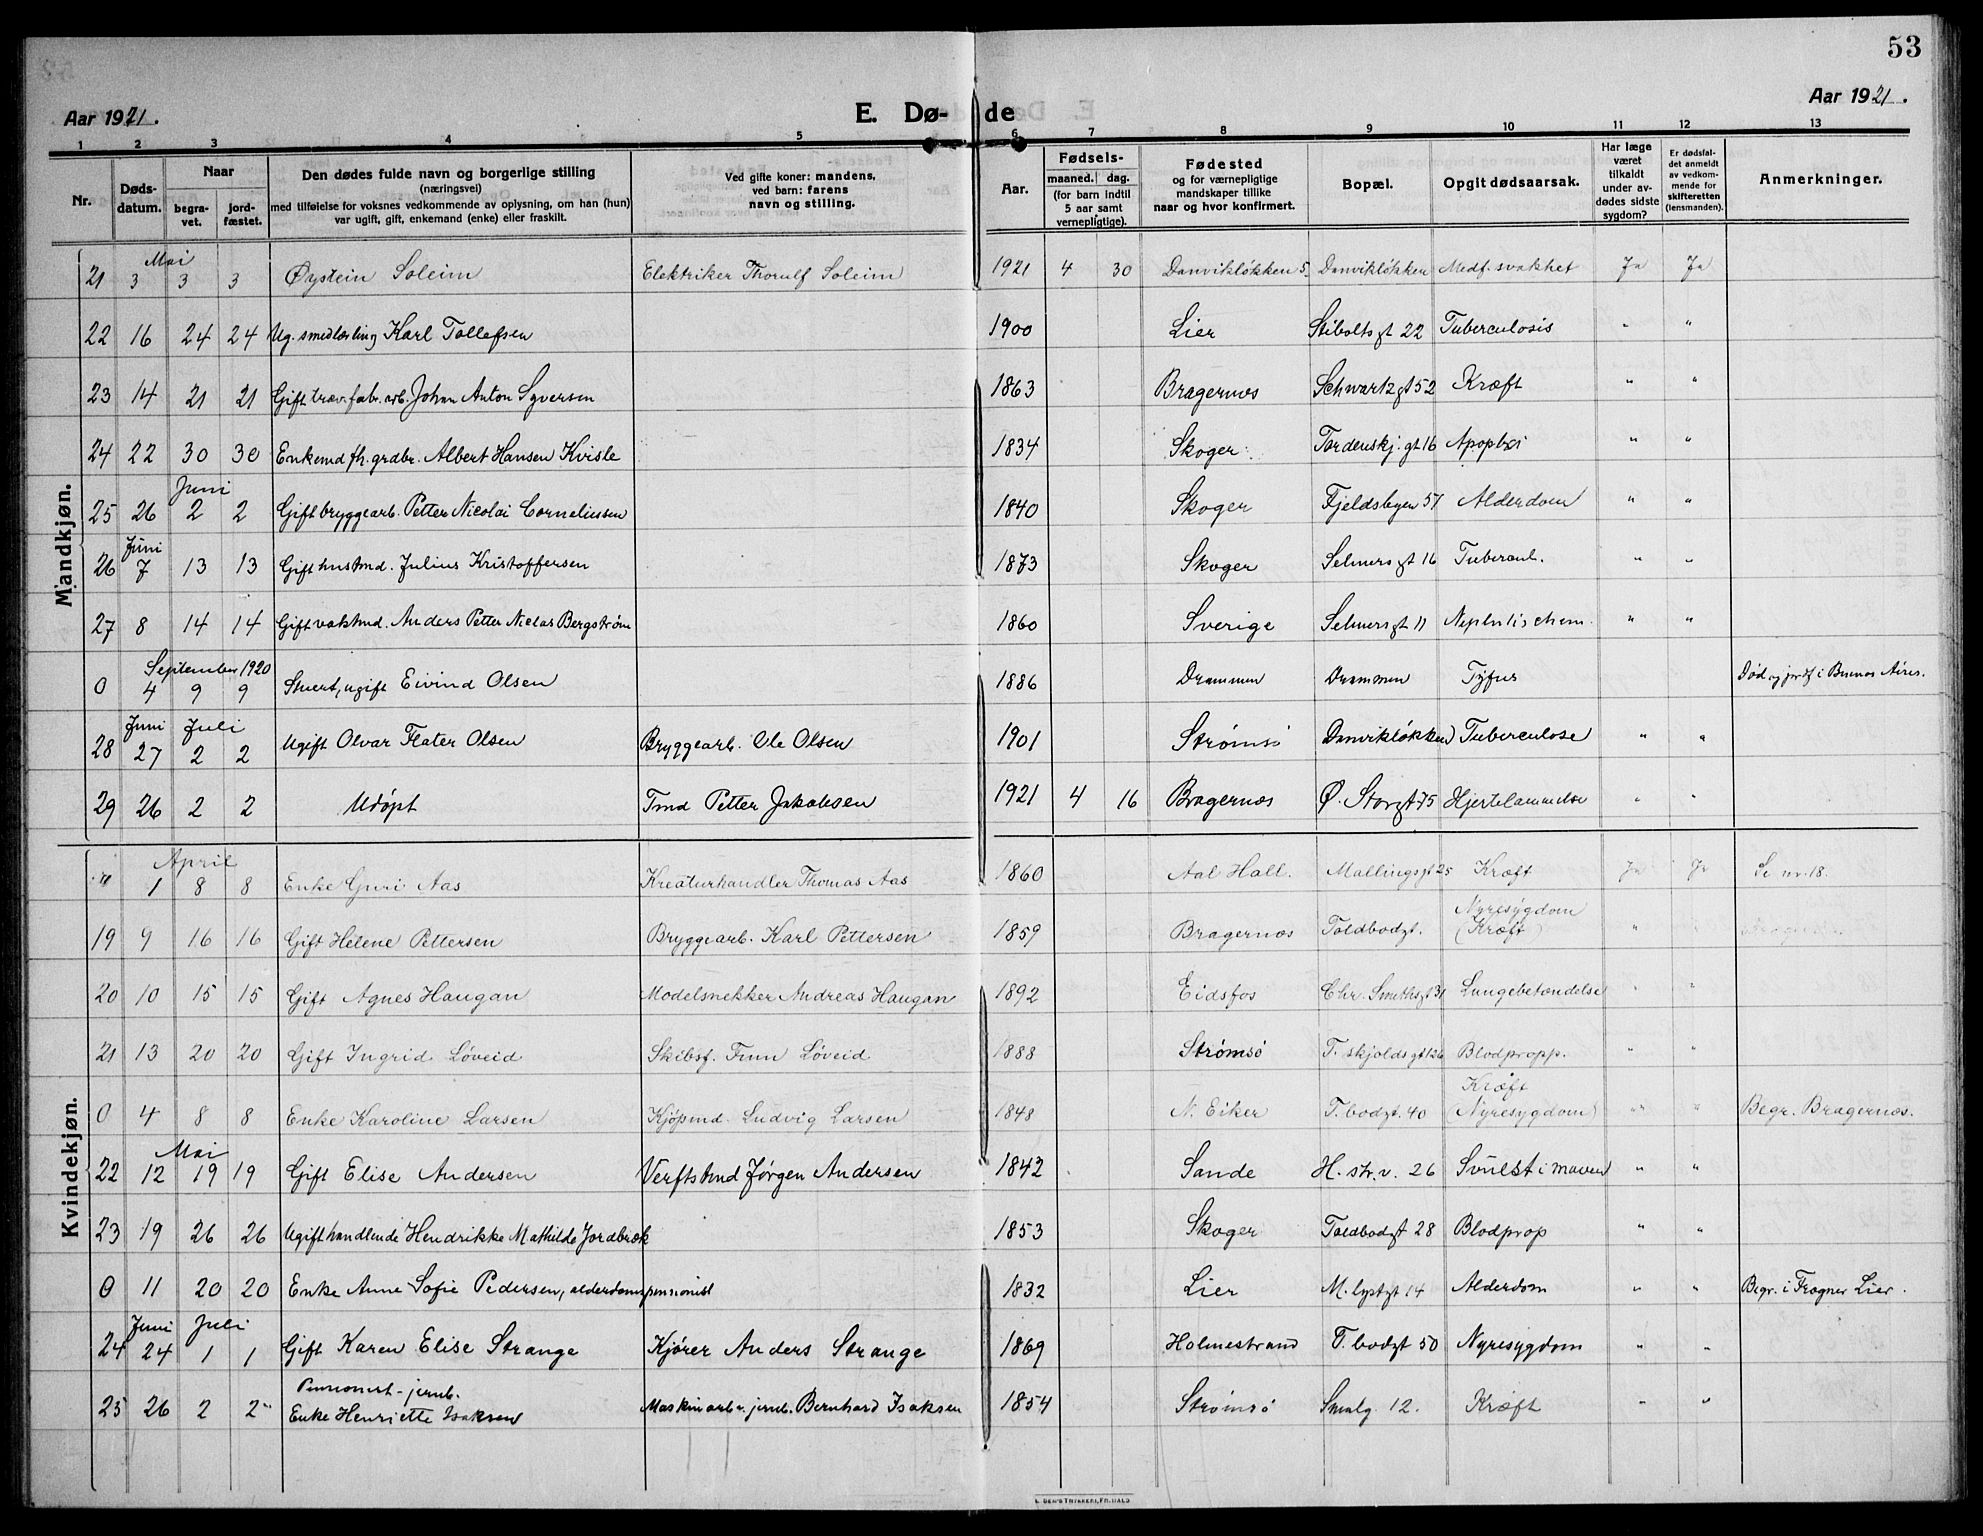 53
Aar 1921.
E. Dø-
de
Aar 1921.
1 2 3 4 5 6 7 8 9 10 11 12 13
Nr.
Døds-
datum.
Naar
begra-
vet.
jord-
fæstet.
Den dødes fulde navn og borgerlige stilling
(næringsvei)
med tilføielse for voksnes vedkommende av oplysning, om han (hun)
var ugift, gift, enkemand (enke) eller fraskilt.
Ved gifte koner: mandens,
ved barn: farens
navn og stilling.
Aar.
Fødsels-
maaned. dag.
(for barn indtil
5 aar samt
vernepligtige).
Fødested
og for værnepligtige
mandskaper tillike
naar og hvor konfirmert.
Bopæl.
Opgit dødsaarsak.
Har læge
været
tilkaldt
under av-
dødes sidste
sygdom?
Er dødsfal-
det anmeldt
av vedkom-
mende for
skifteretten
(lensmanden).
Anmerkninger.
Mandkjøn.
Mai
21 3 3 3 Øystein Soleim Elektriker Thorulf Soleim 1921 4 30 Danvikløkken 5 Danvikløkken Medf. svakhet Ja Ja
22 16 24 24 Ug. smedlærling Karl Tollefsen 1900 Lier Stibolts gt 22 Tuberculosis " "
23 14 21 21 Gift træv.fabr.arb. Johan Anton Syversen 1863 Bragernæs Schwartz gt 52 Kræft " "
24 22 30 30 Enkemd fh. grdbr. Albert Hansen Kvisle 1834 Skoger Tordenskj. gt 16 Apoplexi " "
Juni
25 26 2 2 Gift bryggearb. Petter Nicolai Corneliussen 1840 Skoger Fjeldsbyen 51 Alderdom " "
Juni
26 7 13 13 Gift hustmd. Julius Kristoffersen 1873 Skoger Selmers gt 16 Tubercul. " "
27 8 14 14 Gift vaktmd. Anders Petter Niclas Bergstrøm 1860 Sverige Selmers gt 11 Nephritis chron. " "
September 1920
0 4 9 9 Stuert, ugift Eivind Olsen 1886 Drammen Drammen Tyfus Død og jordf i Buenos Aires.
Juni Juli
28 27 2 2 Ugift Olvar Flater Olsen Bryggearb. Ole Olsen 1901 Strømsø Danvikløkken Tuberculose " "
29 26 2 2 Udøpt Tmd Petter Jakobsen 1921 4 16 Bragernæs Ø. Storgt 75 Hjertelammelse " "
Kvindekjøn.
April
1 8 8 Enke Guri Aas Kreaturhandler Thomas Aas 1860 Aal Hall. Mallingsgt 25 Kræft Ja Ja Se nr. 18.
19 9 16 16 Gift Helene Pettersen Bryggearb. Karl Pettersen 1859 Bragernæs Toldbodgt. Nyresygdom (Kræft) " "
20 10 15 15 Gift Agnes Haugan Modelsnekker Andreas Haugan 1892 Eidsfos Chr. Smithsgt 31 Lungebetændelse " "
21 13 20 20 Gift Ingrid Løveid Skibst. Finn Løveid 1888 Strømsø T. skjolds gt 126 Blodpropp. " "
0 4 8 8 Enke Karoline Larsen Kjøpmd. Ludvig Larsen 1848 N. Eiker T. bodgt. 40 Kræft (Nyresygdom) " " Begr. Bragernæs.
Mai
22 12 19 19 Gift Elise Andersen Verftstmd Jørgen Andersen 1842 Sande H. str. v. 26 Svulst i maven " "
23 19 26 26 Ugift handlende Hendrikke Mathilde Jordbræk 1853 Skoger Toldbodgt 28 Blodprop " "
0 11 20 20 Enke Anne Sofie Pedersen, alderdomspensionist 1832 Lier M. lystgt 14 Alderdom " " Begr. i Frogner Lier.
Juni Juli
24 24 1 1 Gift Karen Elise Strange Kjører Anders Strange 1869 Holmestrand T. bodgt 50 Nyresygdom " "
Pensionist - jernb.
25 26 2 2 Enke Henriette Isaksen Maskinarb v. jernb. Bernhard Isaksen 1854 Strømsø Smalg. 12. Kræft " "